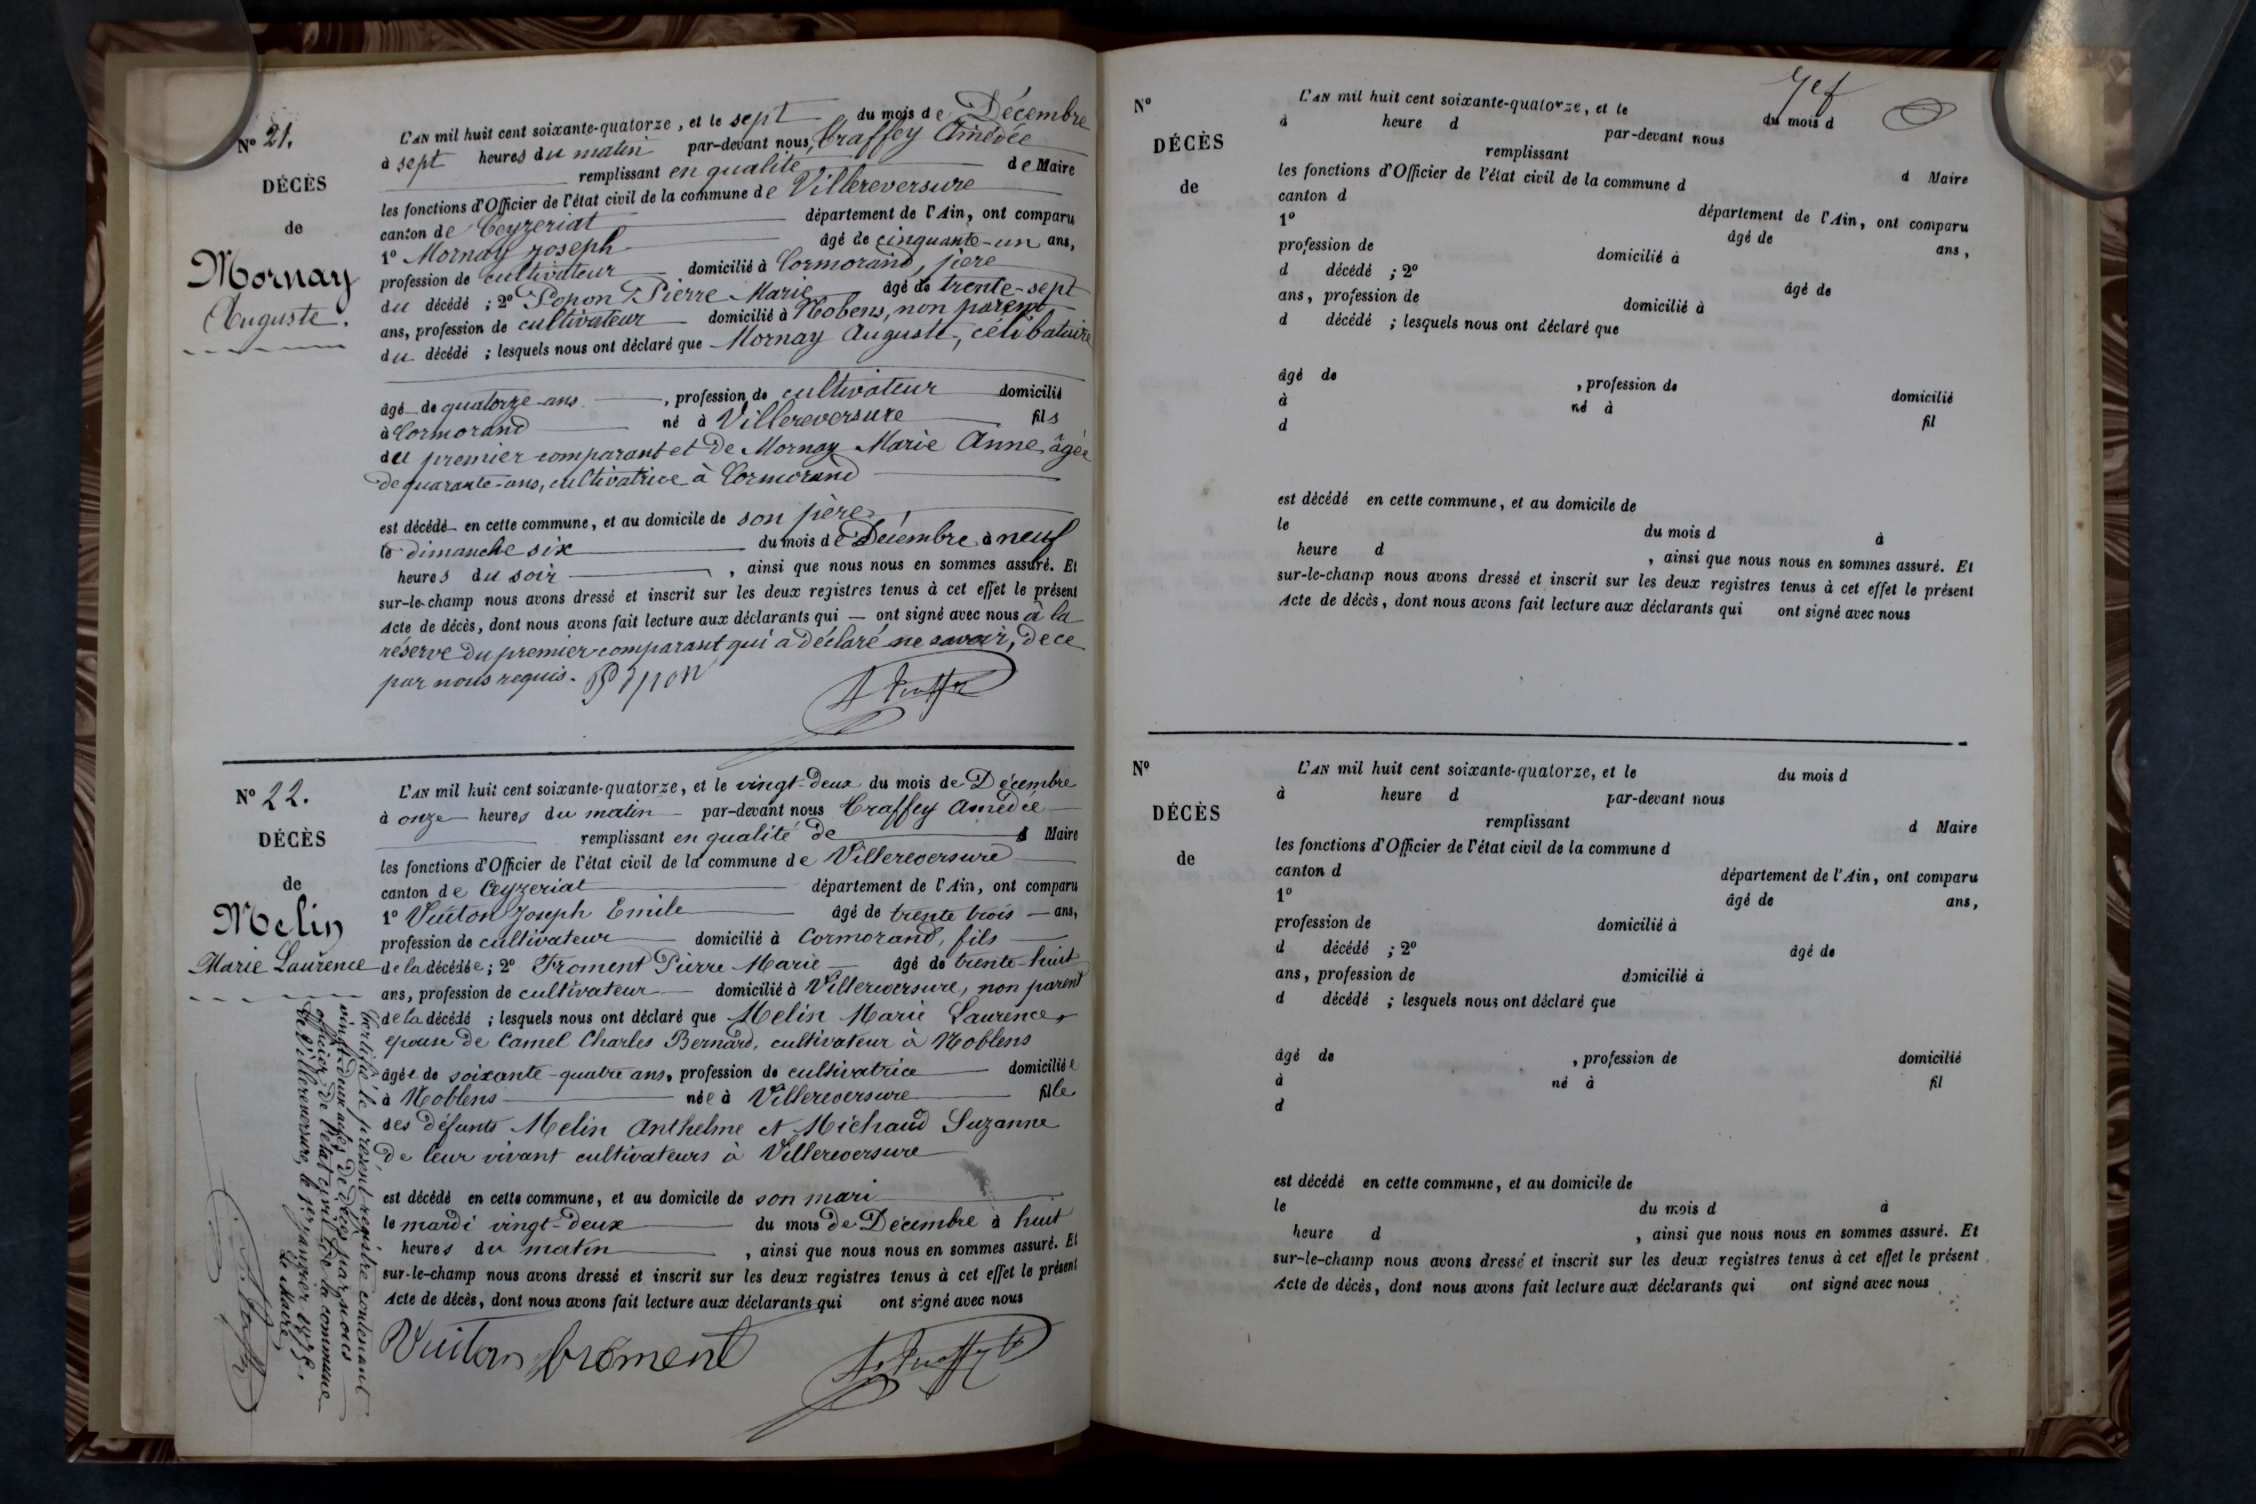 N° 21.
DÉCÈS
de
Mornay
Auguste.
L'AN mil huit cent soixante-quatorze, et le sept du mois de Décembre
à sept heures du matin par-devant nous, Traffey Amédée
remplissant en qualité de Maire
les fonctions d'Officier de l'état civil de la commune de Villereversure
canton de Ceyzeriat département de l'Ain, ont comparu
1° Mornay Joseph âgé de cinquante-un ans,
profession de cultivateur domicilié à Cormorand, père
du décédé ; 2° Popon Pierre Marie âgé de trente-sept
ans, profession de cultivateur domicilié à Noblens, non parent
du décédé ; lesquels nous ont déclaré que Mornay Auguste, célibataire
âgé de quatorze ans, profession de cultivateur domicilié
à Cormorand né à Villereversure fils
du premier comparant et de Mornay Marie Anne âgée
de quarante-ans, cultivatrice à Cormorand
est décédé en cette commune, et au domicile de son père,
le dimanche six du mois de Décembre à neuf
heures du soir, ainsi que nous nous en sommes assuré. Et
sur-le-champ nous avons dressé et inscrit sur les deux registres tenus à cet effet le présent
Acte de décès, dont nous avons fait lecture aux déclarants qui — ont signé avec nous à la
réserve du premier comparant qui a déclaré ne savoir, de ce
par nous requis. Popon
N° 22.
DÉCÈS
de
Melin
Marie Laurence
L'AN mil huit cent soixante-quatorze, et le vingt-deux du mois de Décembre
à onze heures du matin par-devant nous Traffey Amédée
remplissant en qualité de d Maire
les fonctions d'Officier de l'état civil de la commune de Villereversure
canton de Ceyzeriat département de l'Ain, ont comparu
1° Vuiton Joseph Emile âgé de trente trois ans,
profession de cultivateur domicilié à Cormorand, fils
de la décédée ; 2° Froment Pierre Marie âgé de trente-huit
ans, profession de cultivateur domicilié à Villereversure, non parent
de la décédé ; lesquels nous ont déclaré que Melin Marie Laurence,
epouse de Camel Charles Bernard, cultivateur à Noblens
âgée de soixante-quatre ans, profession de cultivatrice domiciliée
à Noblens née à Villereversure fille
des défunts Melin Anthelme et Michaud Suzanne
de leur vivant cultivateurs à Villereversure
est décédé en cette commune, et au domicile de son mari
le mardi vingt-deux du mois de Décembre à huit
heures du matin, ainsi que nous nous en sommes assuré. Et
sur-le-champ nous avons dressé et inscrit sur les deux registres tenus à cet effet le présent
Acte de décès, dont nous avons fait lecture aux déclarants qui ont signé avec nous
Vuiton froment
Certifié le présent registre contenant
vingt-deux actes de décès par nous
officier de l'état civil de la commune
de Villereversure, le 1er janvier 1875.
Le Maire
N°
DÉCÈS
de
L'AN mil huit cent soixante-quatorze, et le du mois d
à heure d par-devant nous
remplissant d Maire
les fonctions d'Officier de l'état civil de la commune d
canton d département de l'Ain, ont comparu
1° âgé de ans,
profession de domicilié à
d décédé ; 2° âgé de
ans, profession de domicilié à
d décédé ; lesquels nous ont déclaré que
âgé de , profession de domicilié
à né à fil
d
est décédé en cette commune, et au domicile de
le du mois d à
heure d , ainsi que nous nous en sommes assuré. Et
sur-le-champ nous avons dressé et inscrit sur les deux registres tenus à cet effet le présent
Acte de décès, dont nous avons fait lecture aux déclarants qui ont signé avec nous
N°
DÉCÈS
de
L'AN mil huit cent soixante-quatorze, et le du mois d
à heure d par-devant nous
remplissant d Maire
les fonctions d'Officier de l'état civil de la commune d
canton d département de l'Ain, ont comparu
1° âgé de ans,
profession de domicilié à
d décédé ; 2° âgé de
ans, profession de domicilié à
d décédé ; lesquels nous ont déclaré que
âgé de , profession de domicilié
à né à fil
d
est décédé en cette commune, et au domicile de
le du mois d à
heure d , ainsi que nous nous en sommes assuré. Et
sur-le-champ nous avons dressé et inscrit sur les deux registres tenus à cet effet le présent
Acte de décès, dont nous avons fait lecture aux déclarants qui ont signé avec nous